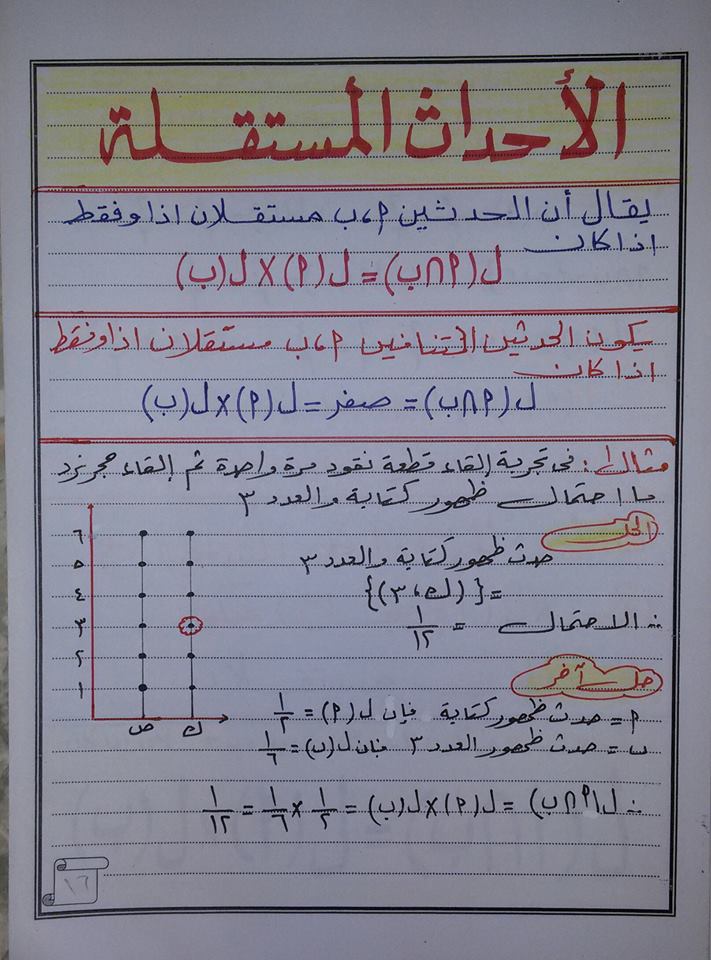 الأحداث المستقلة
يقال أن الحدثين م، ب مستقلان اذا وفقط
اذا كان
ل(م∩ب) = ل(م) × ل(ب)
يكون الحدثين المتنافين م، ب مستقلان اذا وفقط
اذا كان
ل(م∩ب) = صفر = ل(م) × ل(ب)
مثال ١: فى تجربة إلقاء قطعة نقود مرة واحدة ثم إلقاء حجر نرد
ما احتمال ظهور كتابة والعدد ٣
الحل
حدث ظهور كتابة والعدد ٣
= {(ك، ٣)}
∴ الاحتمال = ١/١٢
٦
٥
٤
٣
٢
١
ص ك
حل آخر
م = حدث ظهور كتابة فإن ل(م) = ١/٢
ب = حدث ظهور العدد ٣ فإن ل(ب) = ١/٦
∴ ل(م∩ب) = ل(م) × ل(ب) = ١/٢ × ١/٦ = ١/١٢
١٦